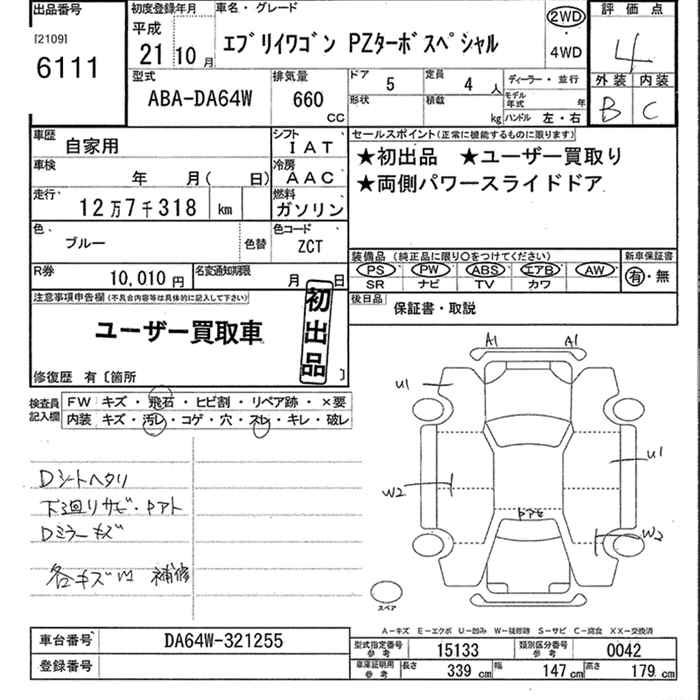 出品番号
[2109]
6111
初度登録年月
平成
21 10 月
車名・グレード
エブリイワゴン PZターボスペシャル
2WD
・
4WD
評価点
4
外装 内装
B C
型式
ABA-DA64W
排気量
660
CC
ドア 5
定員 4 人
形状
積載 kg
ディーラー・並行
モデル年式 年
ハンドル 左・右
車歴 自家用
シフト IAT
車検 年 月( 日)
冷房 AAC
走行 12万7千318 km
燃料
ガソリン
色 ブルー
色替
色コード
ZCT
R券 10,010 円
名変通知期限 月 日
セールスポイント(正常に機能するものに限ります)
★初出品 ★ユーザー買取り
★両側パワースライドドア
装備品(純正品に限り○をつけてください)
PS PW ABS エアB AW
SR ナビ TV カワ
新車保証書
有・無
後日品 保証書・取説
注意事項申告欄(不具合内容等は具体的に記入して下さい)
ユーザー買取車
初出品
修復歴 有〔箇所 〕
検査員記入欄
FW キズ・飛石・ヒビ割・リペア跡・×要
内装 キズ・汚レ・コゲ・穴・スレ・キレ・破レ
Dシートヘタリ
下廻リサビ・ドアト
Dミラーキズ
各キズ凹 補修
A1 A1
U1
U1
W2
W2
ドアセ
スペア
A-キズ E-エクボ U-凹み W-補修跡 S-サビ C-腐食 XX-交換済
車台番号 DA64W-321255
登録番号
型式指定番号
参考
15133
類別区分番号
参考
0042
車庫証明用
参考
長さ 339 cm
幅 147 cm
高さ 179 cm